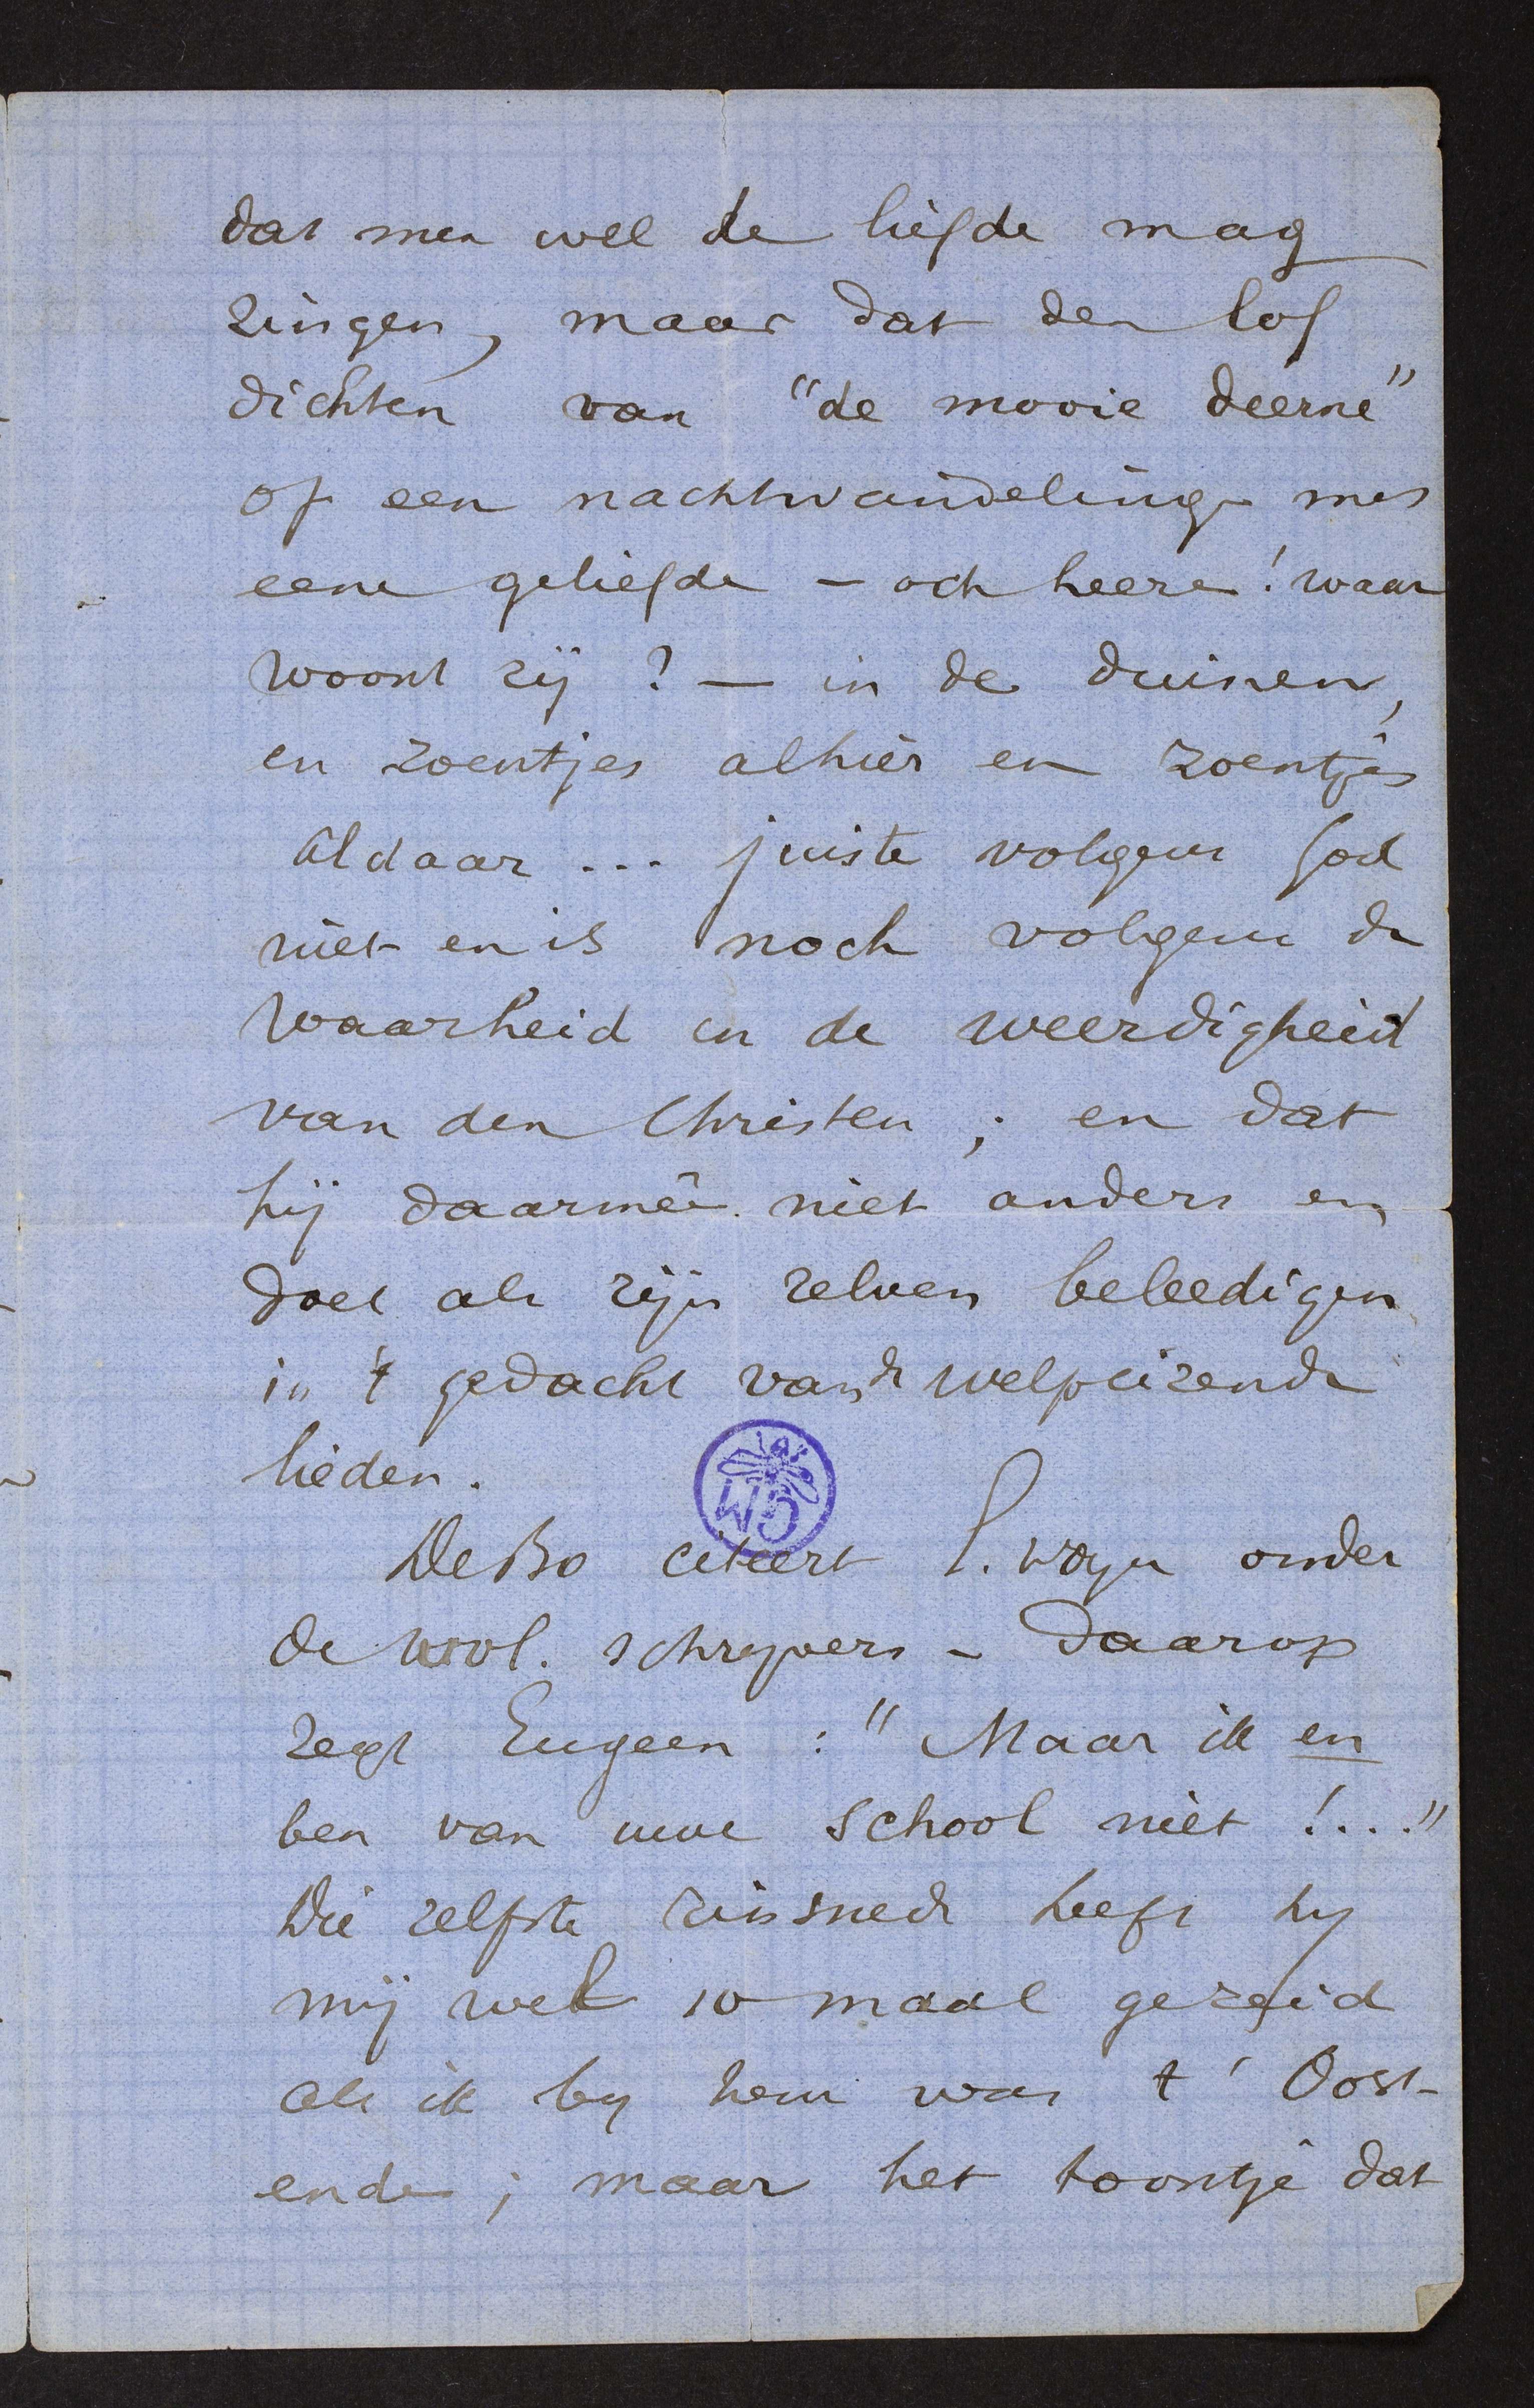 dat men wel de liefde mag
zingen, maar dat den lof
dichten van "de mooie deerne"
of een nachtwandeling met
eene geliefde - och heere! waar
woont zij? - in de duinen,
en zoentjes alhier en zoentjes
aldaar ... juiste volgens God
niet en is noch volgens de
waarheid en de weerdigheid
van den Christen; en dat
hij daarmeê niet anders en
doet als zijn zelven beleedigen
in 't gedacht van de welpeizende
lieden.
De Bo citeert onder
de wvl. schryvers - Daarop
zegt Eugeen: "Maar ik en
ben van uwe school niet!...."
Die zelfste zinsnede heeft hy
mij wel 10 maal gezeid
als ik by hem was t' Oost-
ende; maar het toontje dat
GM